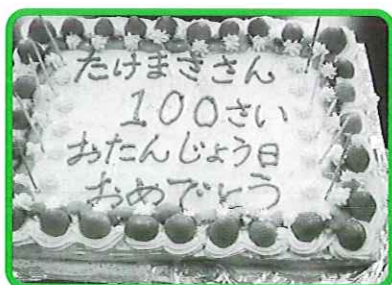 たけまささん
100さい
おたんじょう日
おめでとう